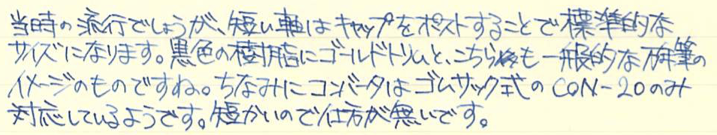 当時の流行でしょうが、短い軸はキャップをポストすることで標準的な
サイズになります。黒色の樹脂にゴールドトリムと、こちらも一般的な万年筆の
イメージのものですね。ちなみにコンバータはゴムサック式のCON-20のみ
対応しているようです。短かいので仕方が無いです。